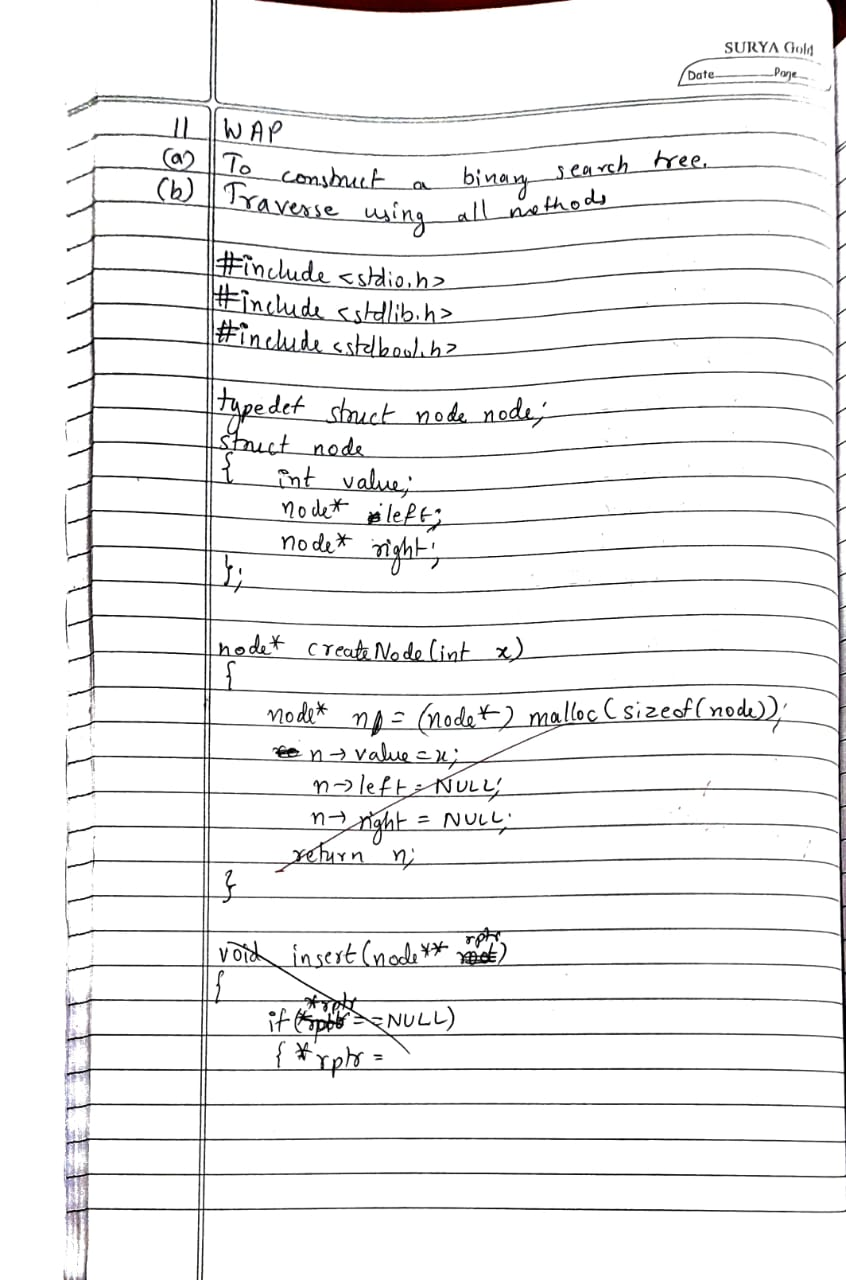 SURYA Gold
Date Page
11 WAP
(a) To construct a binary search tree.
(b) Traverse using all methods
#include <stdio.h>
#include <stdlib.h>
#include <stdbool.h>
typedef struct node node;
struct node
{ int value;
node* left;
node* right;
};
node* createNode(int x)
{
node* n = (node*) malloc(sizeof(node));
n→value = x;
n→left = NULL;
n→right = NULL;
return n;
}
void insert(node** rptr)
{
if(*rptr == NULL)
{ *rptr =